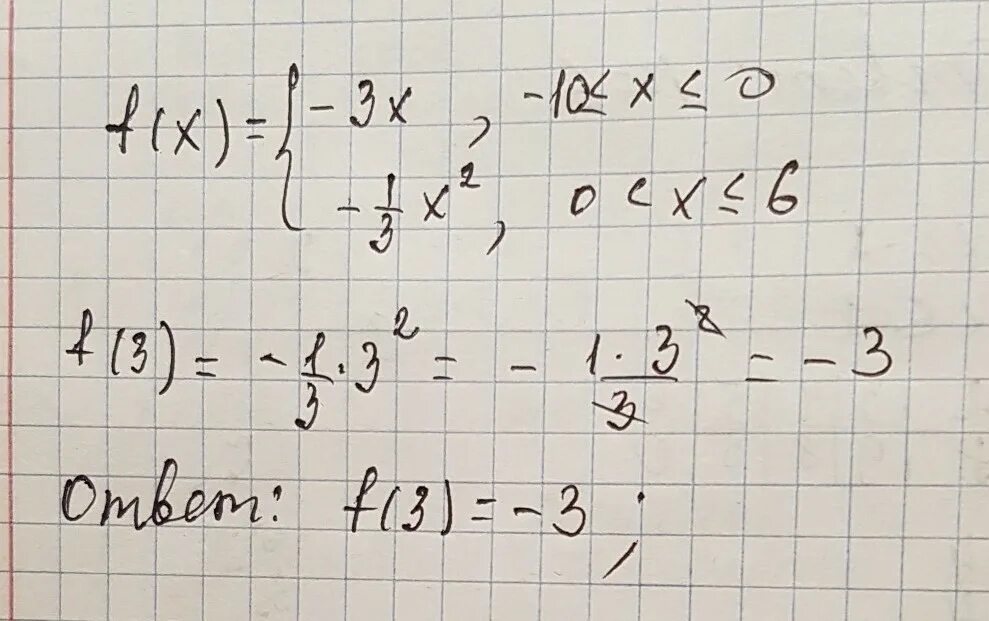 f(x) = { -3x, -10 ≤ x ≤ 0
-1/3 x², 0 < x ≤ 6
f(3) = -1/3 · 3² = - 1 · 3²/3 = -3
Ответ: f(3) = -3;